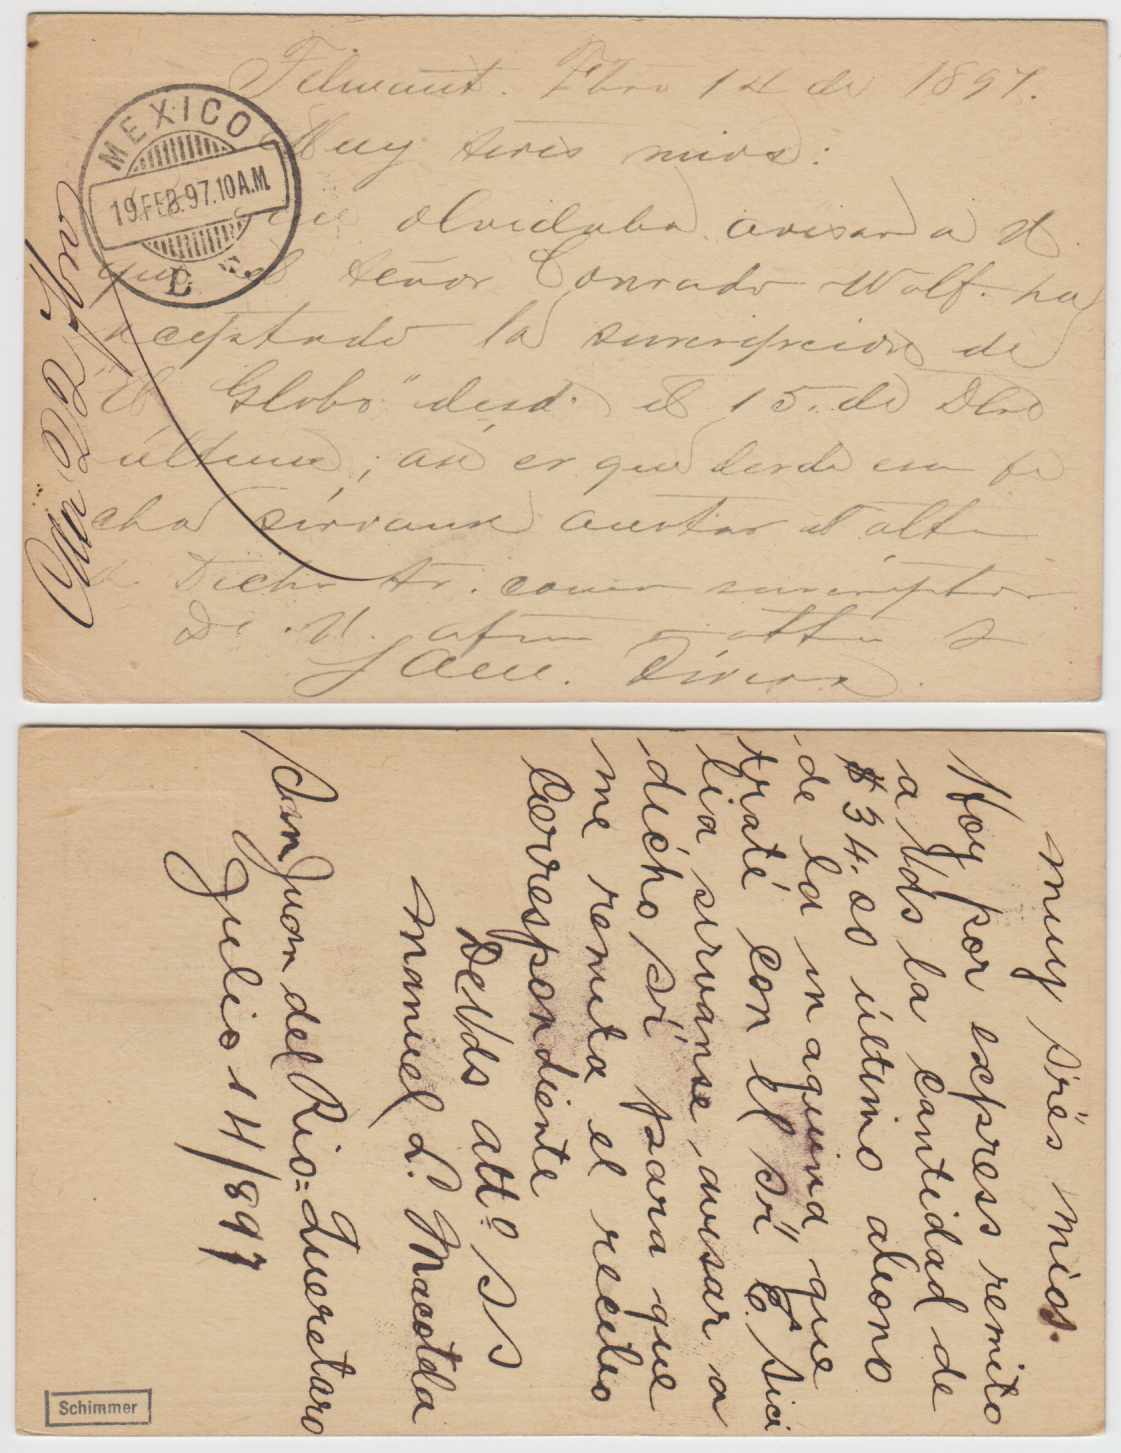 Febro 14 de 1897.
Muy sres mios:
olvidaba avisar a V.
que el señor Conrado Wolf. ha
aceptado la suscripcion de
"El Globo" desd. el 15. de Dbre
último; así es que desde esa fe
cha sírvanse anotar el alta
Dicho Sr. como suscriptor
De V. afmo atto S
MEXICO
19.FEB.97.10A.M.
D F.
muy srēs mios.
Hoy por express remito
a Vds la cantidad de
$34.00 último abono
de la maquina que
traté con el sr̄ E. Sici
lia sirvanse, avisar a
dicho sr̄ para que
me remita el recibo
Correspondiente
De Vds attº S S
Manuel L. Macotela
San Juan del Rio = Queretaro
Julio 14/897
Schimmer